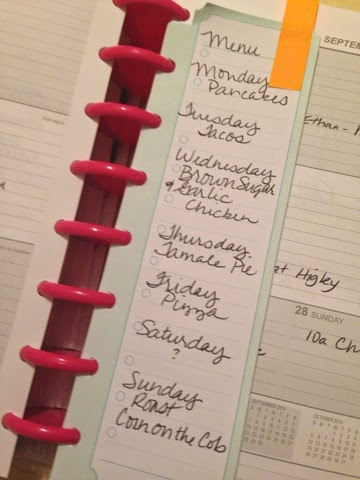 Menu
Monday
Pancakes
Tuesday
Tacos
Wednesday
Brown Sugar
& Garlic
Chicken
Thursday
Tamale Pie
Friday
Pizza
Saturday
?
Sunday
Roast
Corn on the Cob
SEPTE
Ethan -
at Higley
28 SUNDAY
10a Ch
SEPTEMBER 2014
OCTOBER 2014